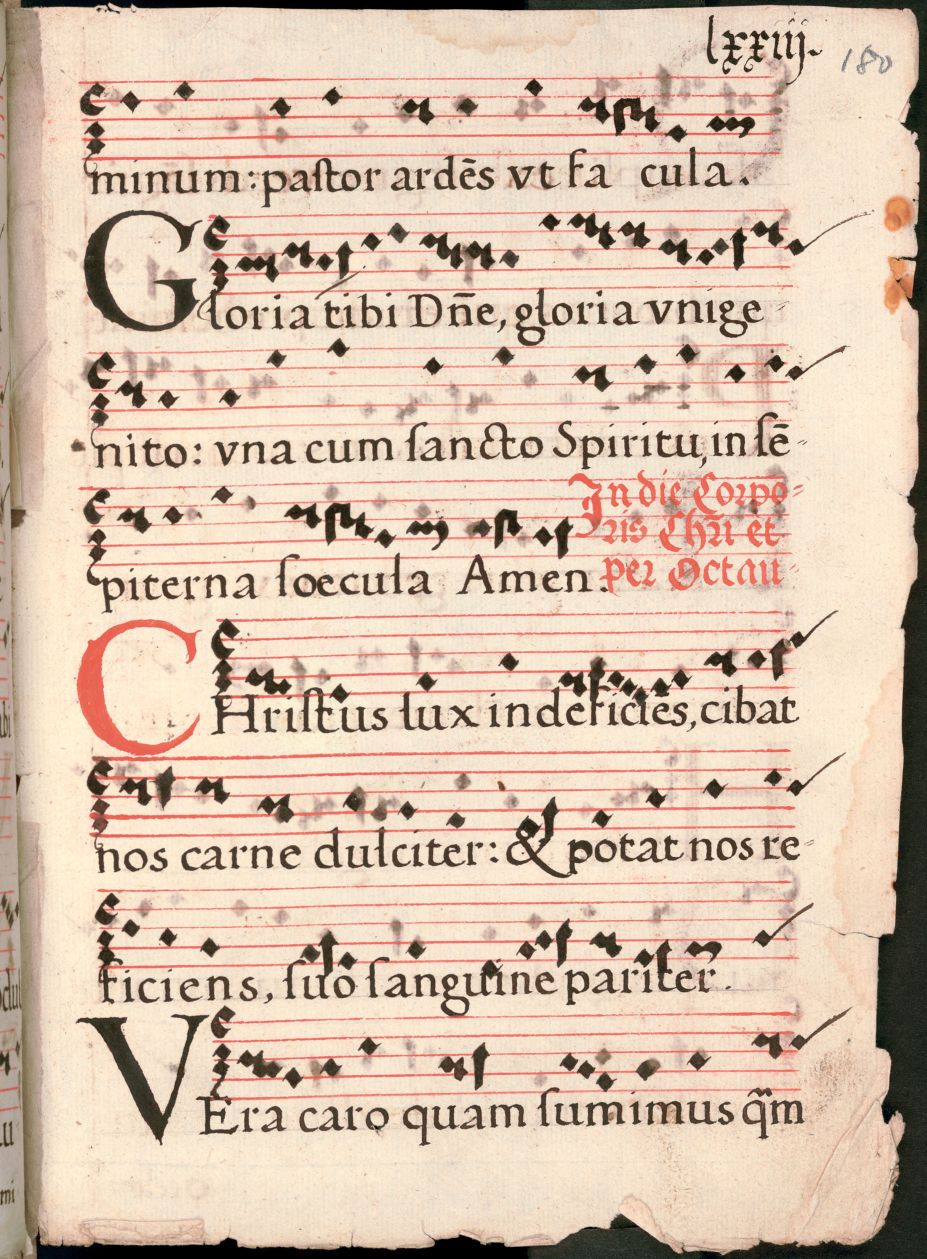 lxxiij.
180
minum: pastor ardēs vt fa cula.
Gloria tibi Dñe, gloria vnige-
nito: vna cum sancto Spiritu, in sē-
piterna soecula Amen.
In die Corpo-
ris Chr̃i et
per Octau-
CHristus lux indeficiēs, cibat
nos carne dulciter: & potat nos re-
ficiens, suo sanguine pariter.
VEra caro quam sumimus q̃m